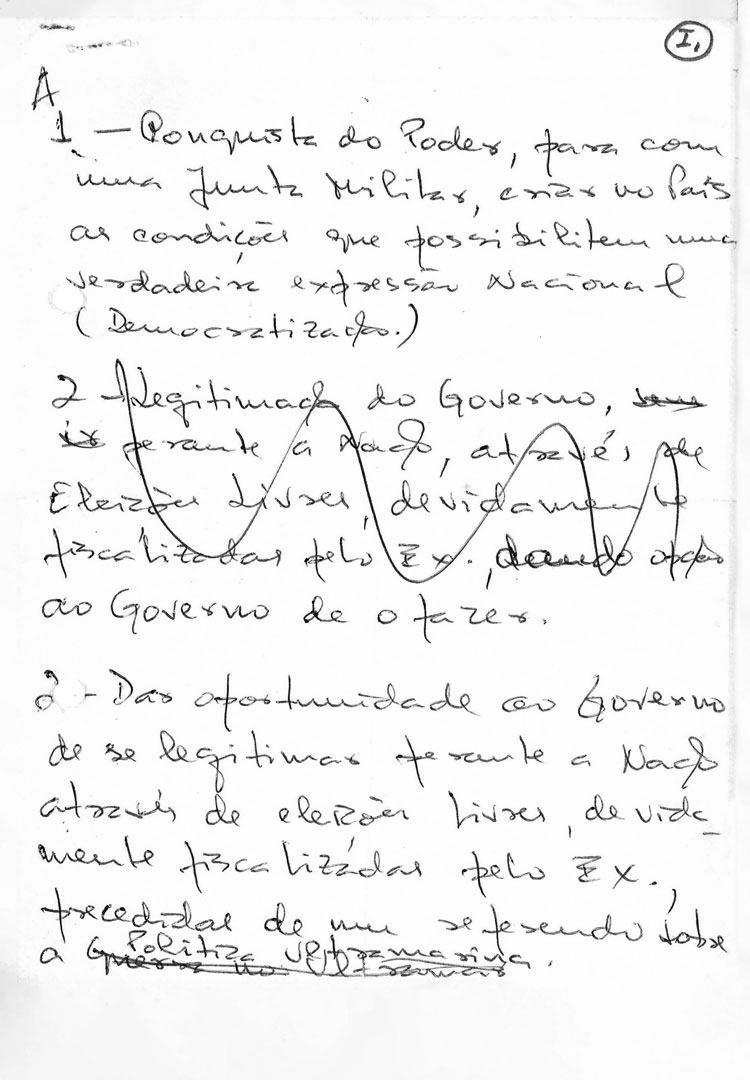 I,
A
1 - Conquista do Poder, para com
uma Junta Militar, criar no País
as condições que possibilitem uma
verdadeira expressão Nacional
(Democratização.)
2 - Legitimação do Governo, sem
ir perante a Nação, através de
Eleições Livres, devidamente
fiscalizadas pelo Ex., dando opção
ao Governo de o fazer.
2 - Dar oportunidade ao Governo
de se legitimar perante a Nação
através de eleições livres, devida_
mente fiscalizadas pelo Ex.,
precedidas de um referendo sobre
Politica Ultramarina.
a Guerra no Ultramar